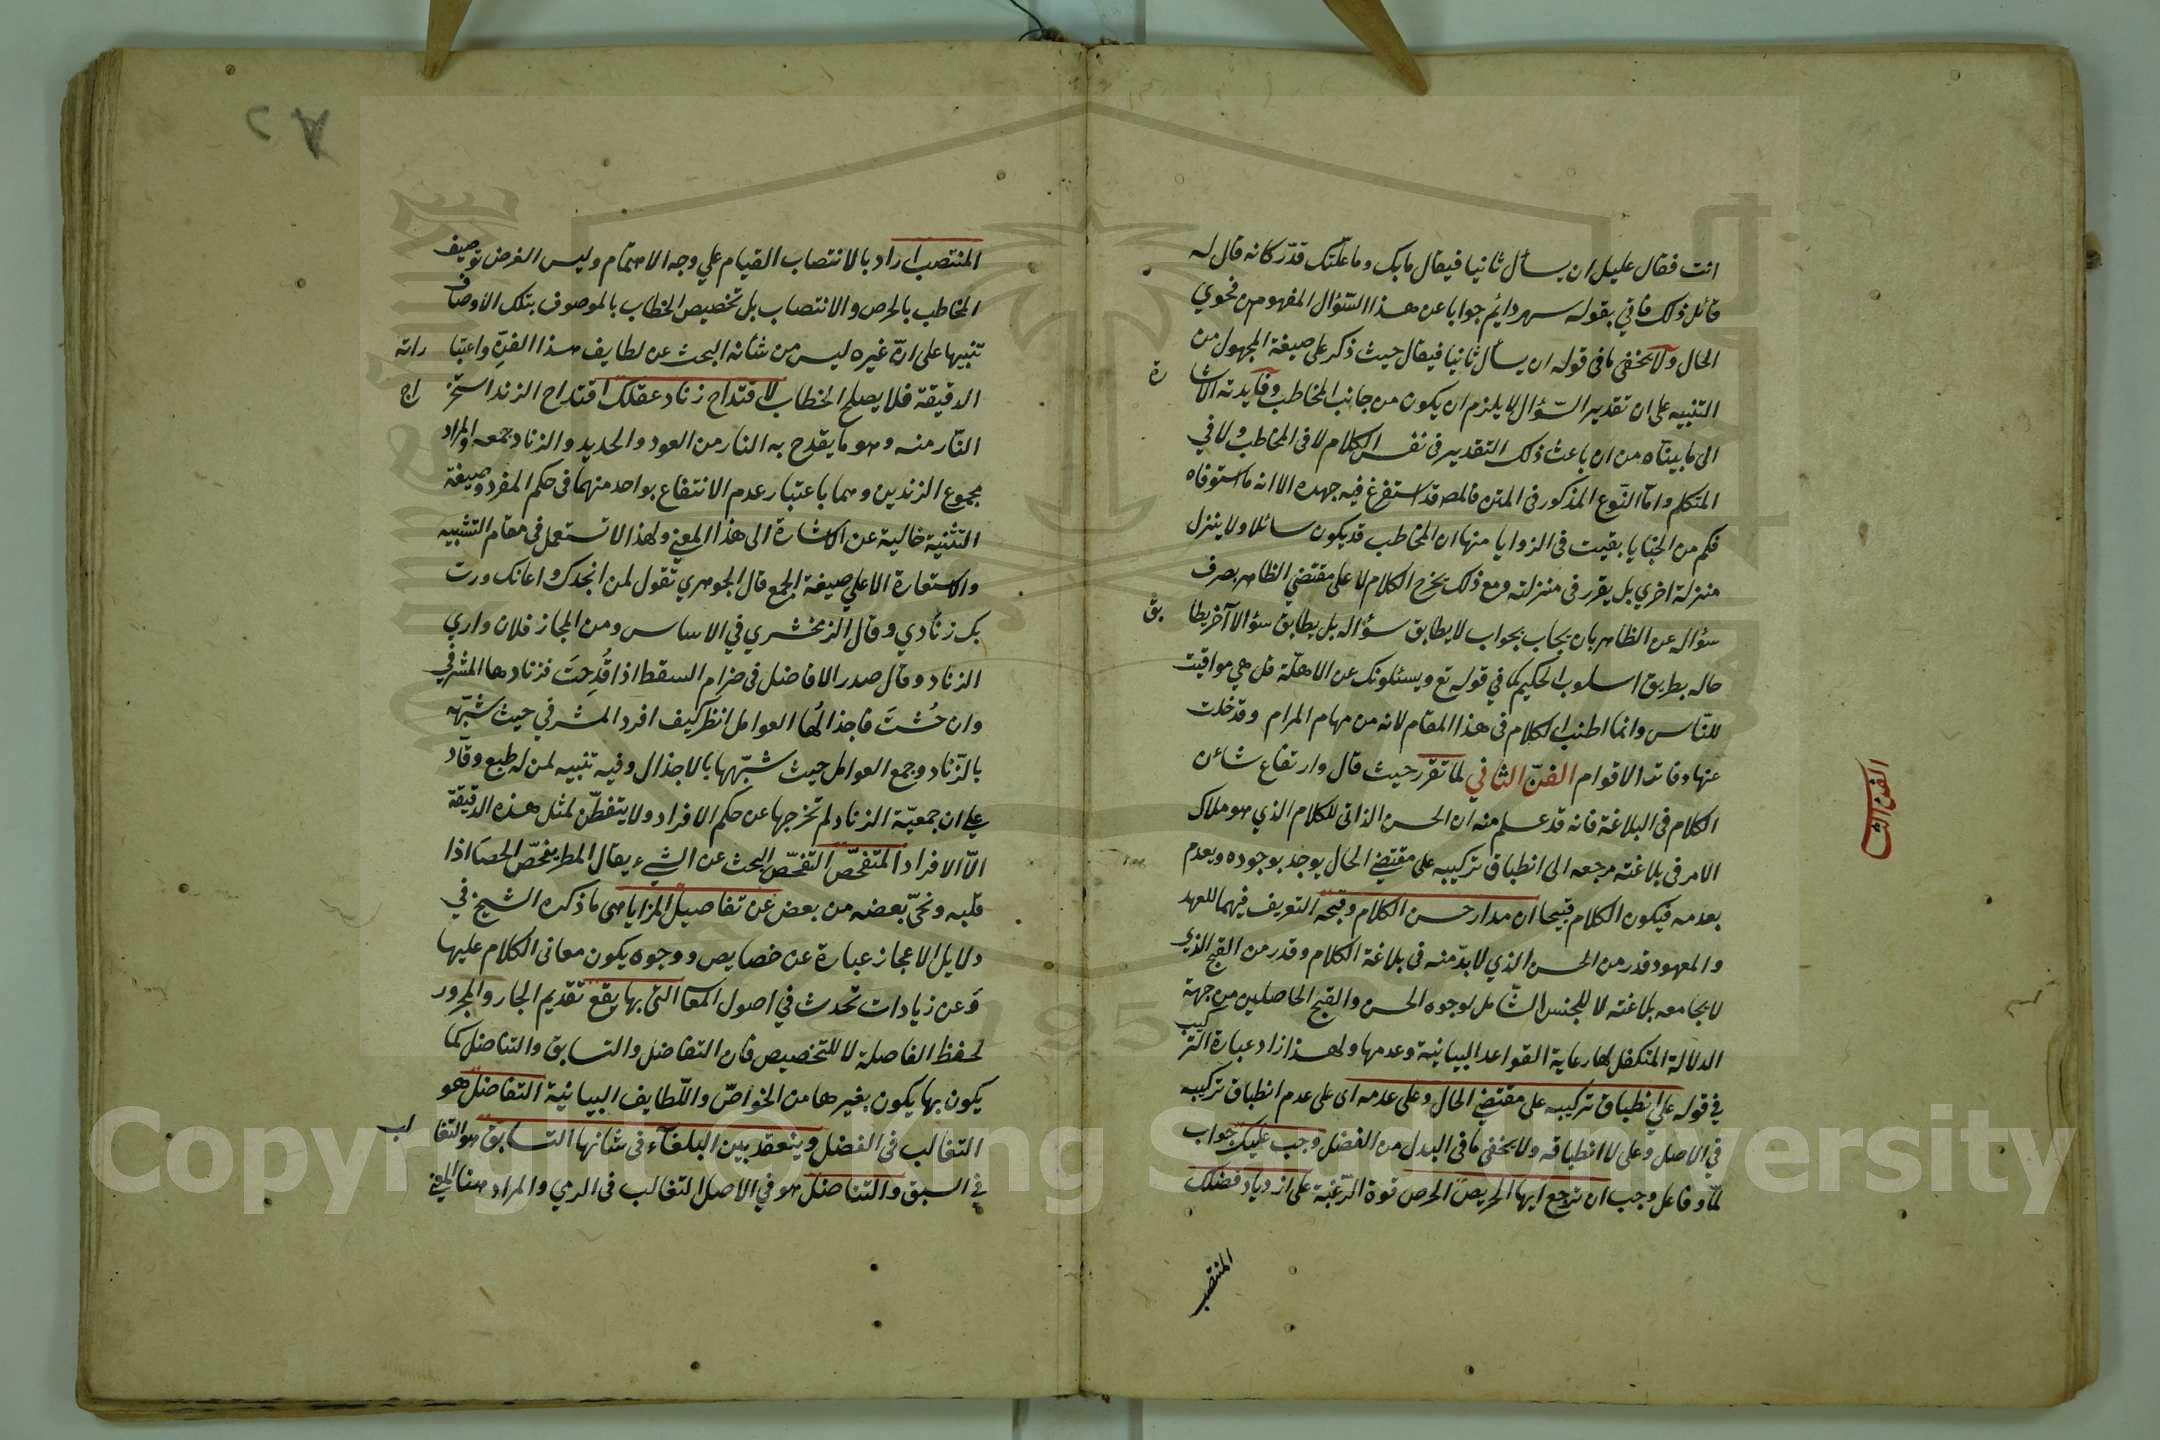 انت فقال عليل ان يسأل ثانيا فيقال مابك وما علّتك قدّر كانه قال له
قائل ذلك فاتي بقوله سهر دائم جوابا عن هذا السّؤال المفهوم من فحوي
الحال ولا يخفى ما في قوله ان يسأل ثانيا فيقال حيث ذكر على صيغة المجهول من
التنبيه على ان تقدير السّؤال لا يلزم ان يكون من جانب المخاطب وفايدته الاشا رة
الى ما بيناه من ان باعث ذلك التقدير في نفس الكلام لا في المخاطب ولا في
المتكلم وامّا النّوع المذكور في المتن فالمصه قد استفرغ فيه جهده الا انه ما استوفاه
فكم من الخبايا بقيت في الزوايا منها ان المخاطب قد يكون سائلا ولا ينزل
منزلة اخري بل يقرر في منزلته ومع ذلك يخرج الكلام لا على مقتضي الظاهر بصرف
سؤاله عن الظاهر بان يجاب بجواب لا يطابق سؤاله بل يطابق سؤالا آخر يطا بق
حاله بطريق اسلوب الحكيم كما في قوله تع ويسئلونك عن الاهلّة قل هي مواقيت
للنّاس وانما اطنب الكلام في هذا المقام لانه من مهام المرام وقد خلت
عنها دفاتر الاقوام الفنّ الثاني لما تقرر حيث قال وارتفاع شائن
الكلام في البلاغة فانه قد علم منه ان الحسن الذاتي للكلام الذي هو ملاك
الامر في بلاغته مرجعه الى انطباق تركيبه على مقتضي الحال يوجد بوجوده ويعدم
بعدمه فيكون الكلام قبيحا ان مدار حسن الكلام وقبحه التعريف فيهما للعهد
والمعهود قدر من الحسن الذي لا بدّ منه في بلاغة الكلام وقدر من القبح الذي
لا يجامعه بلاغته لا للجنس الشّامل لوجوه الحسن والقبح الحاصلين من جهة
الدلالة المتكفل لها رعاية القواعد البيانية وعدمها ولهذا زاد عبارة التر كيب
في قوله علي انطباق تركيبه على مقتضي الحال وعلى عدمه اى على عدم انطباق تركيبه
في الاصل وعلى لا انطباقه ولا يخفى ما في البدل من الفضل وجب عليك جواب
لمّا وفاعل وجب ان ترجع ايها الحريص الحرص قوة الرّغبة على ازدياد فضلك
المنتصب
الفن الثا
المنتصب اراد بالانتصاب القيام علي وجه الاهتمام وليس الغرض توصيف
المخاطب بالحرص والانتصاب بل تخصيص الخطاب بالموصوف بتلك الاوصاف
تنبيها على انّ غيره ليس من شانه البحث عن لطايف هذا الفنّ واعتبا راته
الدقيقة فلا يصلح الخطاب لاقتداح زناد عقلك اقتداح الزند استخر اج
النّار منه وهو ما يقدح به النار من العود والحديد والزناد جمعه والمراد
مجموع الزندين وهما باعتبار عدم الانتفاع بواحد منهما في حكم المفرد وصيغة
التثنية خالية عن الاشارة الى هذا المعني ولهذا لا تستعمل في مقام التشبيه
والاستعارة الا علي صيغة الجمع قال الجوهري تقول لمن انجدك واعانك ورت
بك زنادي وقال الزمخشري في الاساس ومن المجاز فلان واري
الزناد وقال صدر الافاضل في ضرام السقط اذا قُدِحتَ فزنادها المشرفي
وان حُشتَ فاجذالُها العوامل انظر كيف افرد المشرفي حيث شبّهه
بالزّناد وجمع العوامل حيث شبّهها بالاجذال وفيه تنبيه لمن له طبع وقّاد
علي ان جمعيّة الزناد لم تخرجها عن حكم الافراد ولا يتفطّن لمثل هذه الدقيقة
الّا الافراد المتفحّص التفحّص البحث عن الشيء يقال المطر يفحّص الحصا اذا
قلبه ونحّي بعضه من بعض عن تفاصيل المزايا هي ما ذكره الشيخ في
دلايل الاعجاز عبارة عن خصايص ووجوه يكون معاني الكلام عليها
وعن زيادات تحدث في اصول المعا التي بها يقع تقديم الجار والمجرور
لحفظ الفاصلة لا للتخصيص فان التفاضل والتسابق والتناضل كما
يكون بها يكون بغيرها من الخواصّ واللّطايف البيانية التفاضل هو
التغالب في الفضل وينعقد بين البلغآء في شانها التسابق هو التغا لب
في السبق والتناضل هو في الاصل التغالب في الرمي والمراد هنا المعني